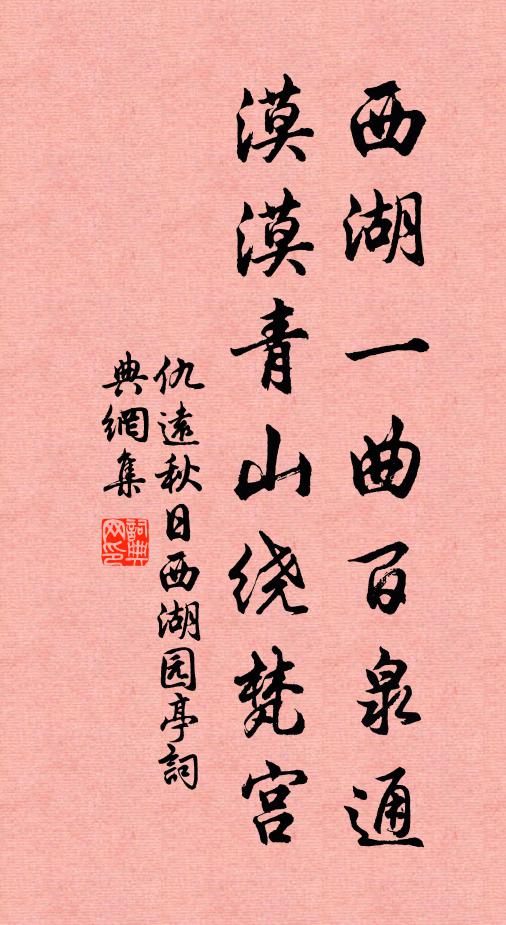 西湖一曲百泉通
漠漠青山绕梵宫
仇遠秋日西湖园亭詞
典網集
詞典网印